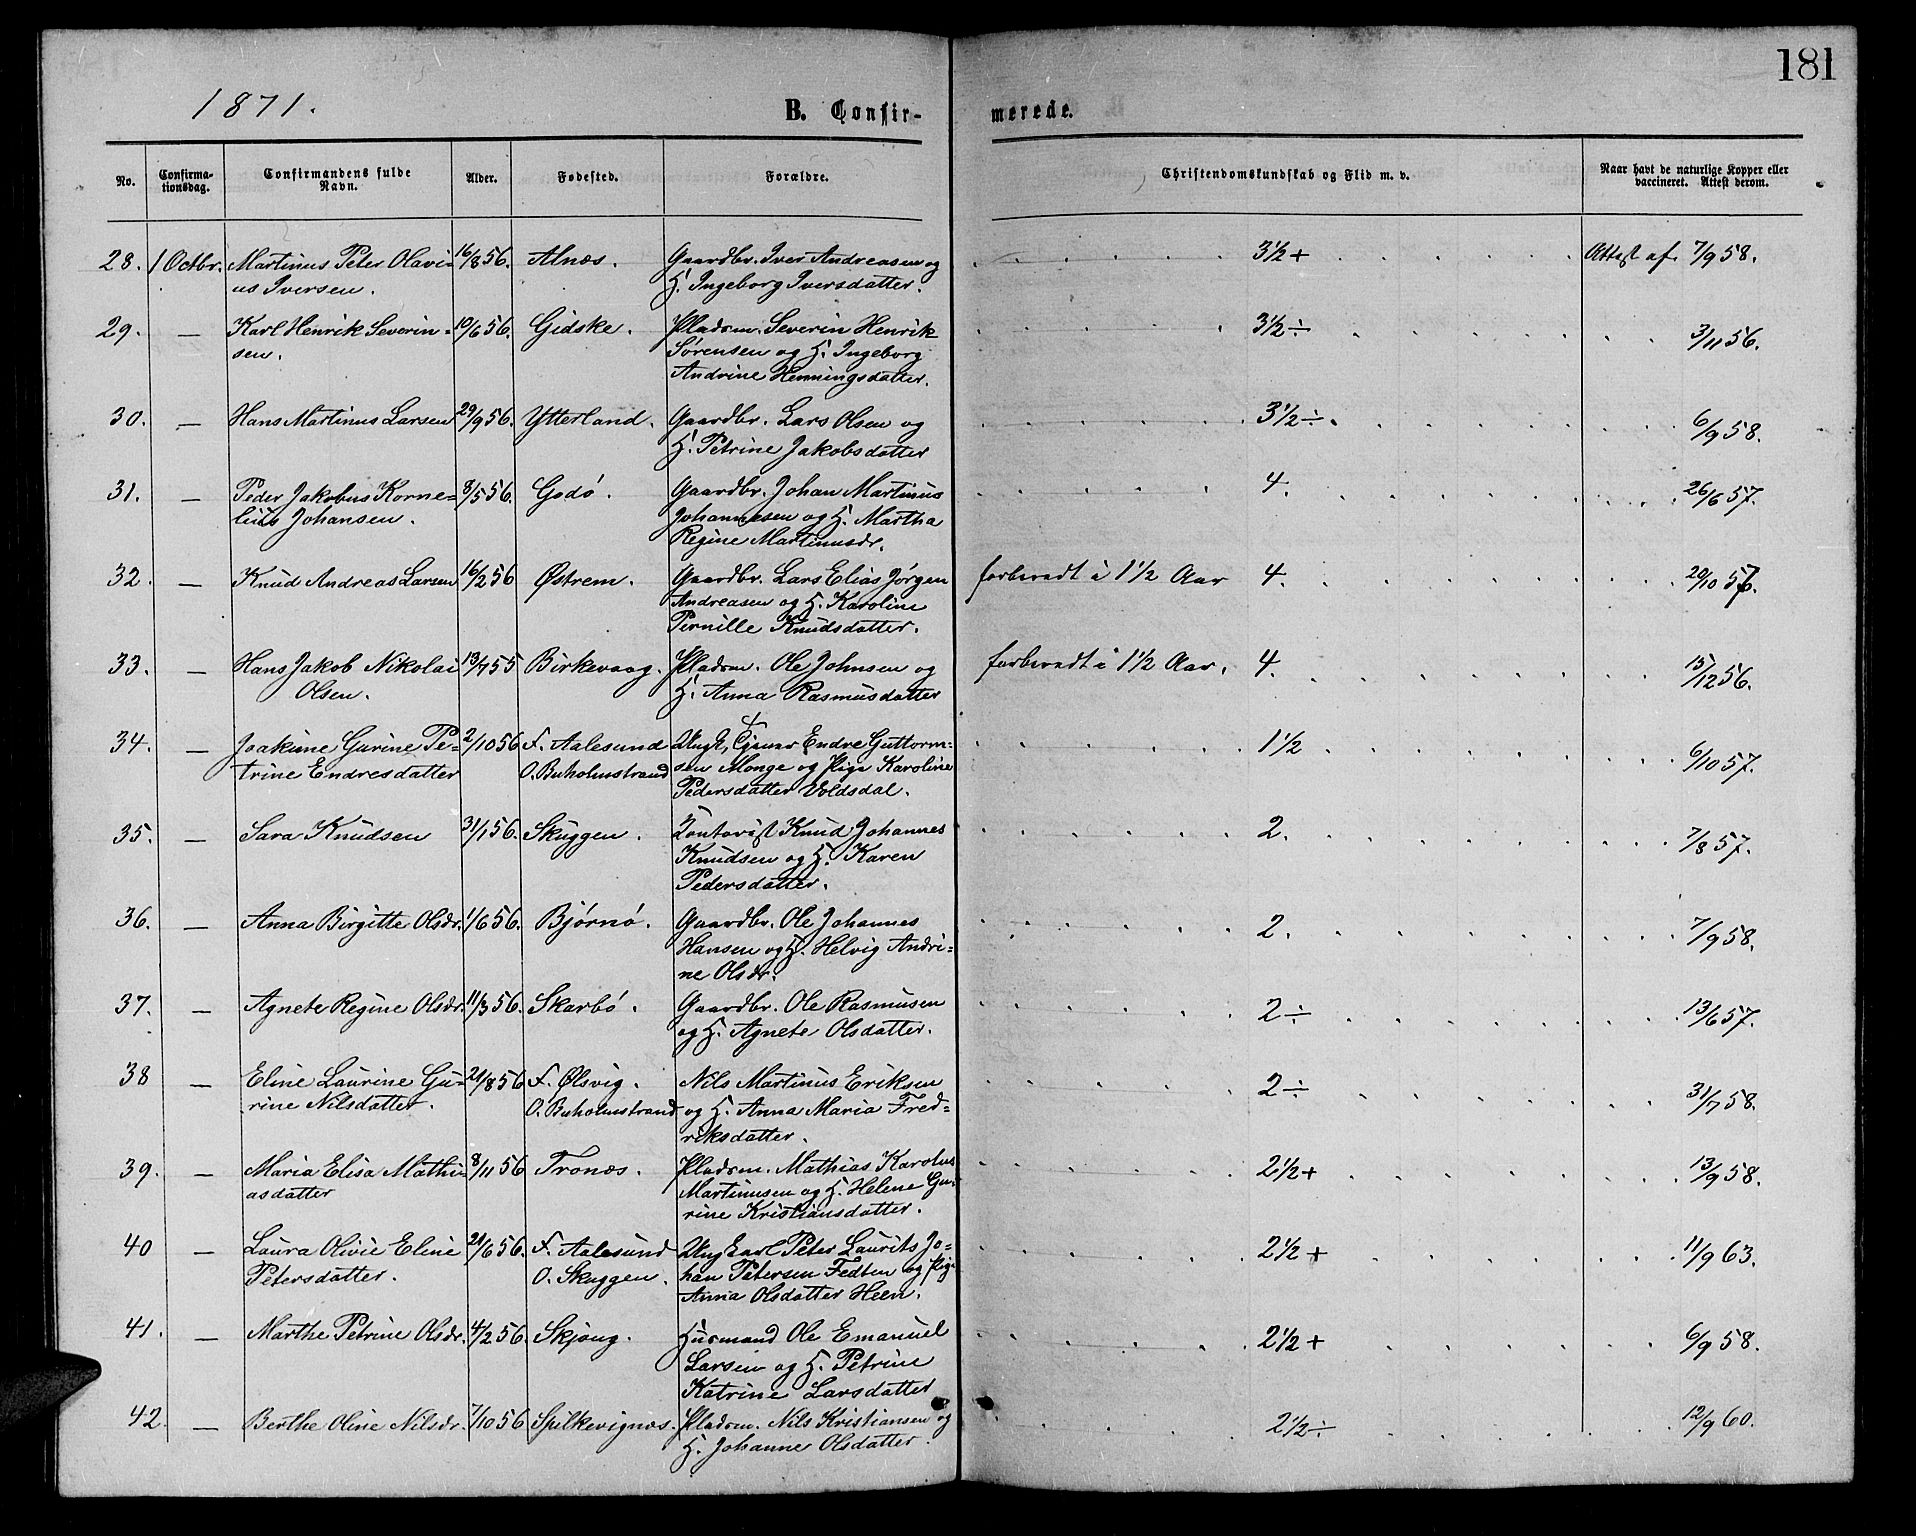 181
1871.
B. Confir-
merede.
No.
Confirma-
tionsdag.
Confirmandens fulde
Navn.
Alder.
Fødested.
Forældre.
Christendomskundskab og Flid m. v.
Naar havt de naturlige Kopper eller
vaccineret. Attest derom.
28. 1 Octbr. Martinus Peter Olavi- 16/8 56. Alnæs. Gaardbr. Iver Andreasen og 3½+ Attest af. 7/9 58.
us Iversen. H. Ingeborg Iversdatter.
29. — Karl Henrik Severin- 19/6 56. Gidske. Pladsm. Severin Henrik 3½÷ 3/11 56.
sen. Sørensen og H. Ingeborg
Andrine Henningsdatter.
30. — Hans Martinus Larsen 29/9 56. Ytterland. Gaardbr. Lars Olsen og 3½÷. 6/9 58.
H. Petrine Jakobsdatter
31. — Peder Jakobus Korne- 8/5 56. Godø. Gaardbr. Johan Martinus 4. 26/6 57.
lius Johansen. Johannesen og H. Martha
Regine Martinusdr.
32. — Knud Andreas Larsen 16/2 56 Østrem. Gaardbr. Lars Elias Jørgen forberedt i 1½ Aar 4. 20/10 57.
Andreasen og H. Karoline
Pernille Knudsdatter.
33. — Hans Jakob Nikolai 13/7 55 Birkevaag. Pladsm. Ole Johnsen og forberedt i 1½ Aar. 4. 15/12 56.
Olsen. H. Anna Rasmusdatter
34. — Joakime Gurine Pe- 2/10 56 F. Aalesund Ungk. Endre Guttorm- 1½ 6/10 57.
trine Endresdatter O. Buholmstrand sen Monge og Pige Karoline
Pedersdatter Voldsdal.
35. — Sara Knudsen 31/1 56. Skuggen. Kontorist Knud Johannes 2. 7/8 57.
Knudsen og H. Karen
Pedersdatter.
36. — Anna Birgitte Olsdr. 1/6 56. Bjørnø. Gaardbr. Ole Johannes 2. 7/9 58.
Hansen og H. Helvig Andri-
ne Olsdr.
37. — Agnete Regine Olsdr. 11/3 56. Skarbø. Gaardbr. Ole Rasmusen 2÷ 13/6 57.
og H. Agnete Olsdatter.
38 — Eline Laurine Gu- 21/8 56 F. Ølsvig. Nils Martinus Eriksen 2÷ 31/7 58.
rine Nilsdatter. O. Buholmstrand og H. Anna Maria Fred-
riksdatter.
39. — Maria Elisa Mathi- 8/11 56 Tronæs. Pladsm. Mathias Karolus 2½+ 13/9 58.
asdatter Martinusen og H. Helene Gu-
rine Kristiansdatter.
40 — Laura Olivie Eline 21/6 56. F. Aalesund Ungkarl Peter Laurits Jo- 2½+ 11/9 63.
Petersdatter. O. Skuggen. han Petersen Fedten og Pige
Anna Olsdatter Heen.
41. — Marthe Petrine Olsdr. 4/2 56. Skjong. Husmand Ole Emanuel 2½+ 6/9 58.
Larsen og H. Petrine
Katrine Larsdatter
42. — Berthe Oline Nilsdr. 7/10 56 Spilkevignæs. Pladsm. Nils Kristiansen og 2½÷ 12/9 60.
H. Johanne Olsdatter.